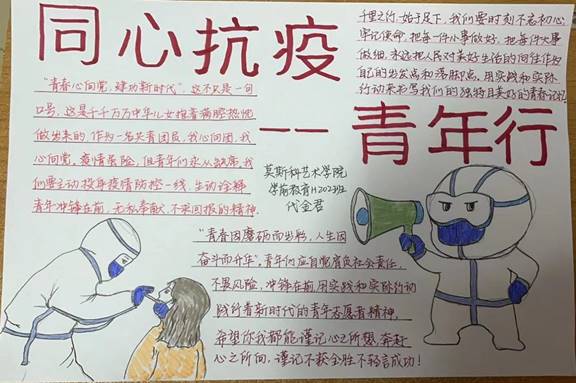 同心抗疫
——青年行
"青春心向党,建功新时代",这不只是一句
口号,这是千千万万中华儿女抱着满腔热忱
做出来的,作为一名共青团员,我心向团,我
心向党,疫情虽险,但青年们永从缺席,我
们要主动投身疫情防控一线,生动诠释
青年冲锋在前,无私奉献,不求回报的精神.
千里之行,始于足下,我们要时刻不忘初心,
牢记使命,把每一件小事做好,把每件大事
做细,永远把人民对美好生活的向往作为
自己的出发点和落脚点,用实践和实际
行动来书写我们的独特且美好的青春记忆
莫斯科艺术学院
学前教育H202班
代金君
"青春因磨砺而出彩,人生因
奋斗而升华",青年们应自觉肩负社会责任,
不畏风险,冲锋在前,用实践和实际行动
践行着新时代的青年志愿者精神,
希望你我都能谨记心之所想,奔赴
心之所向,谨记不获全胜不轻言成功!